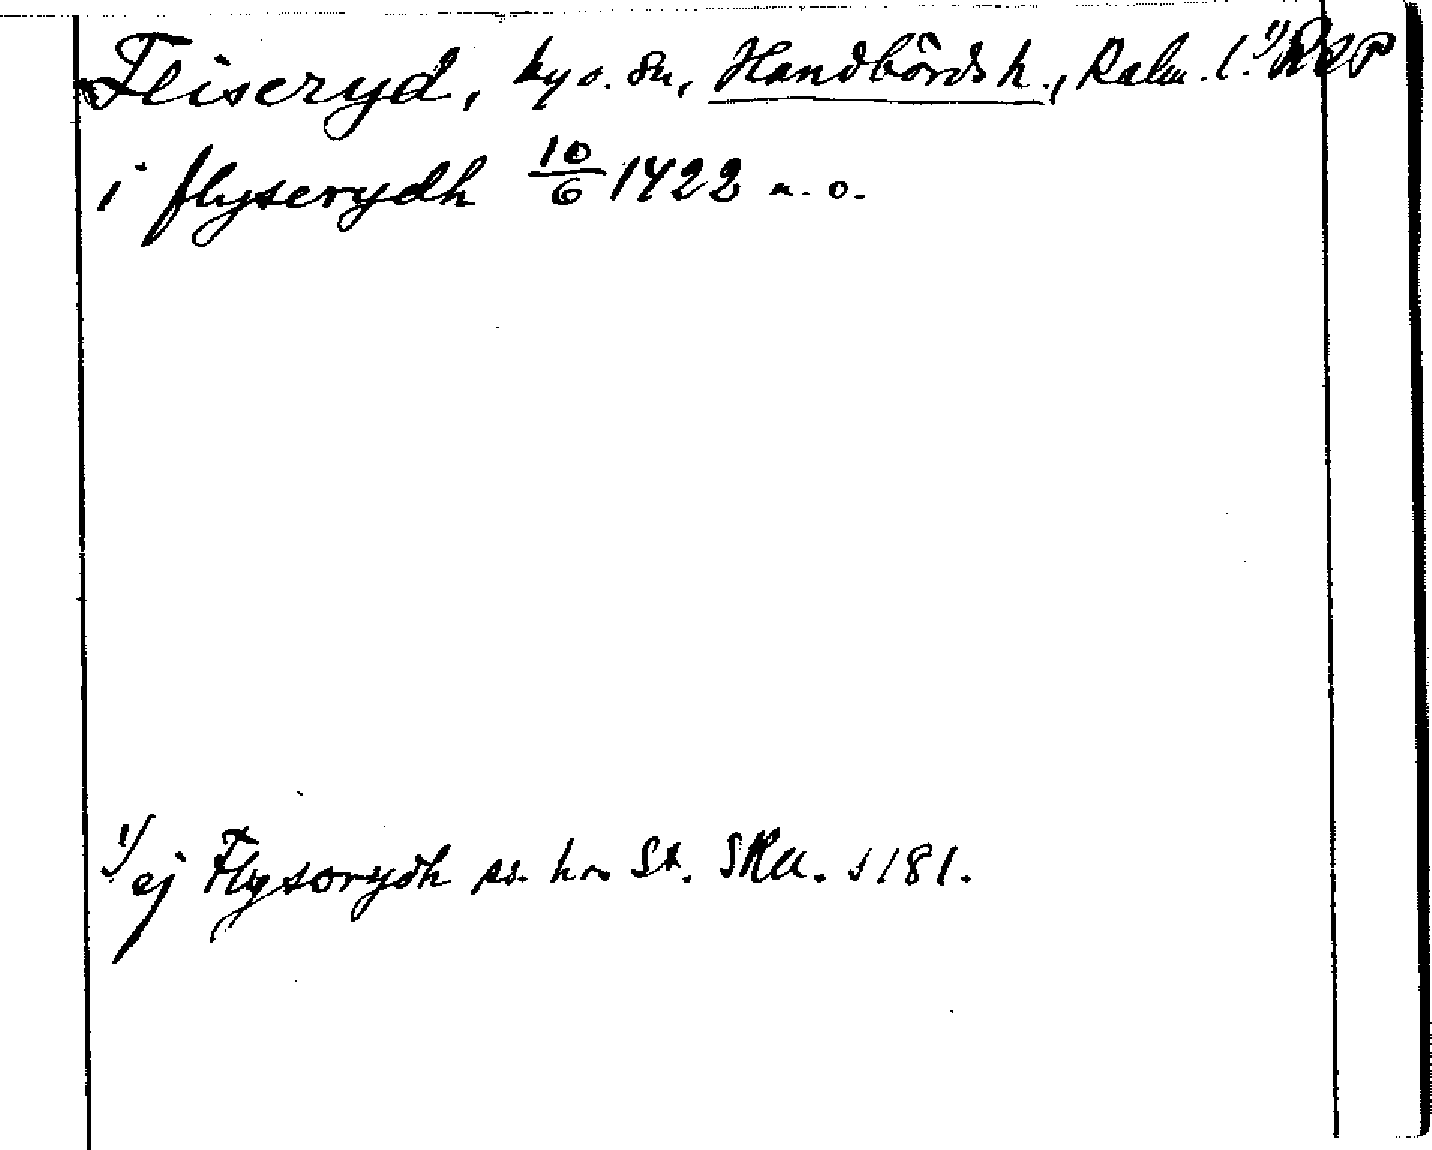 Fliseryd, by o. sn, Handbörds h., Kalm. l. 1) RAP
i flyserydh 10/6 1422 n. o.
1) ej Flysorydh ss. hos St. SRU. s 181.